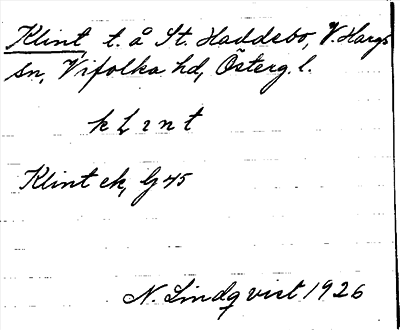 Klint t. å St. Haddebo, V. Hargs
sn, Vifolka hd, Österg. l.
k L ı n t
Klint ek, G 45
N. Lindqvist 1926